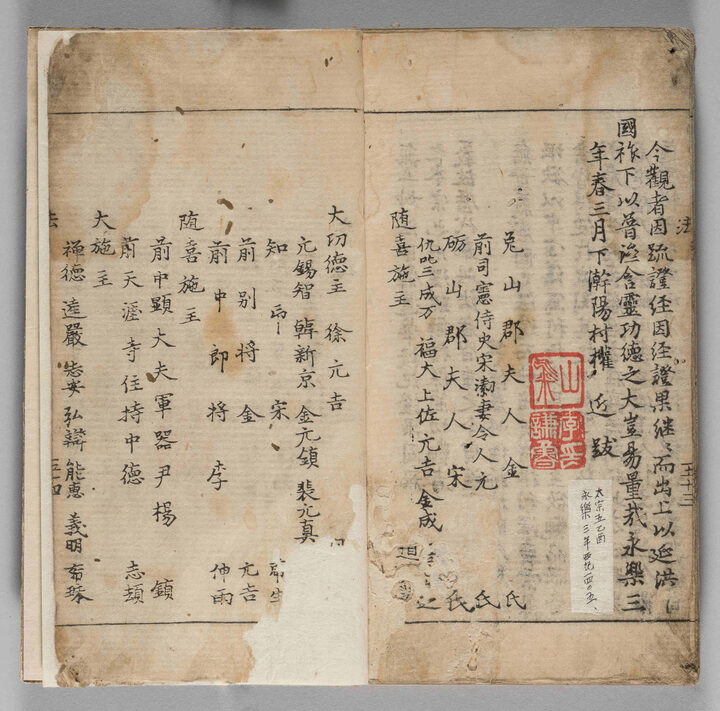 今觀者因疏證經因經證果継〻而出上以延洪
國祚下以普淦含霊功德之大豈易量㢤永樂三
年春三月下澣陽村權近跋
兎山郡夫人金氏
前司憲侍史宋渤妻令人元氏
砺山郡夫人宋氏
仇叱三成万 福大 上佐 元吉 金成
随喜施主
太宗五乙酉
永樂三年 西紀一四〇五、
法
五十三
大功德主 徐元吉
元錫智 韓新京 金元鎮 裴元真
知 宋
前别将金 元吉
前中郎将李 仲雨
随喜施主
前中顕大夫軍器尹楊 鎮
前天涯寺住持中德 志頙
大施主
禅德 逺嚴 志安 弘辯 能恵 義明 希琛
法
五十四